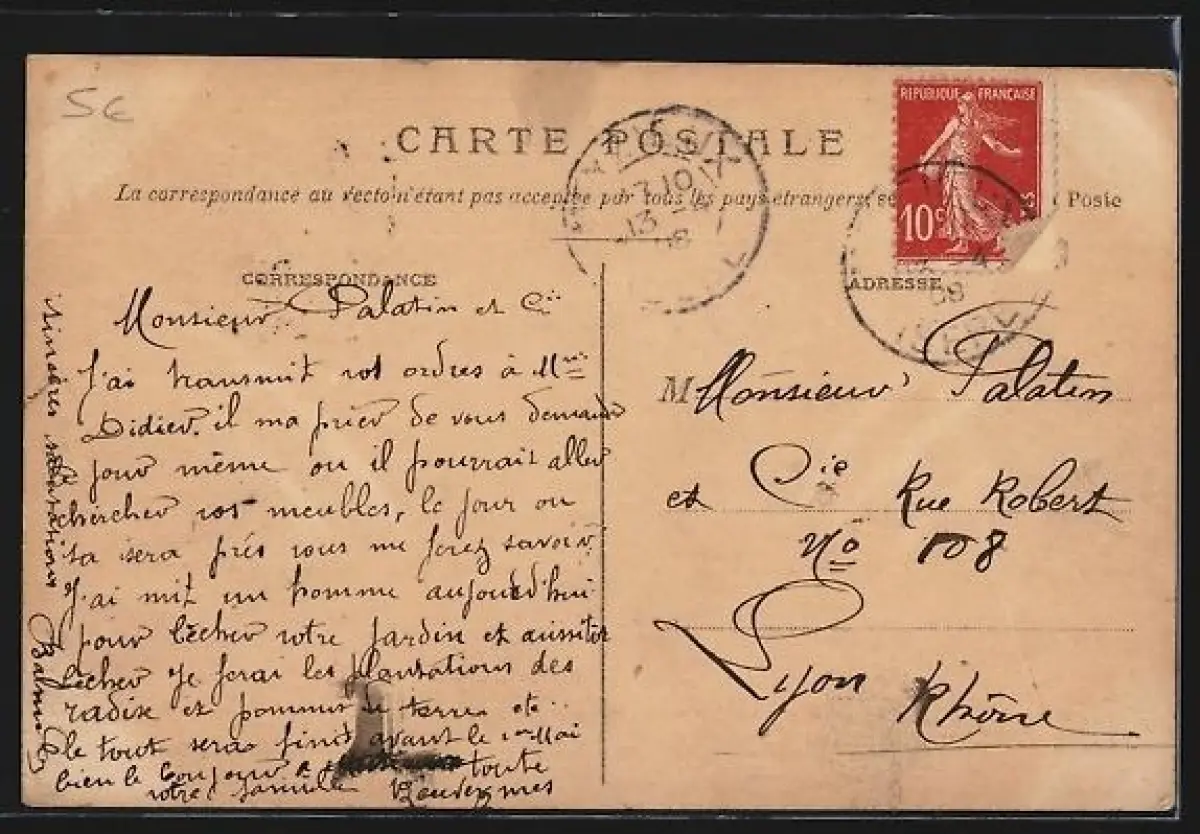 5€
CARTE POSTALE
La correspondance au recto n'étant pas acceptée par tous les pays étrangers, se Poste
REPUBLIQUE FRANÇAISE
10c
13 - 4
08
CORRESPONDANCE
ADRESSE
Monsieur Palatin et Cie
J'ai transmit vos ordres à Mr
Didier. il ma prier de vous demander
jour même ou il pourrait aller
chercher vos meubles, le jour ou
sa sera près vous me ferez savoir
J'ai mit un homme aujourd'hui
pour bêcher votre jardin et aussitôt
bêcher je ferai les plantations des
radix et pomme de terre etc..
le tout sera finit avant le 1er Mai
bien le bonjour à toute
votre famille
sincères salutations
M Monsieur Palatin
et Cie Rue Robert
No 108
Lyon
Rhône